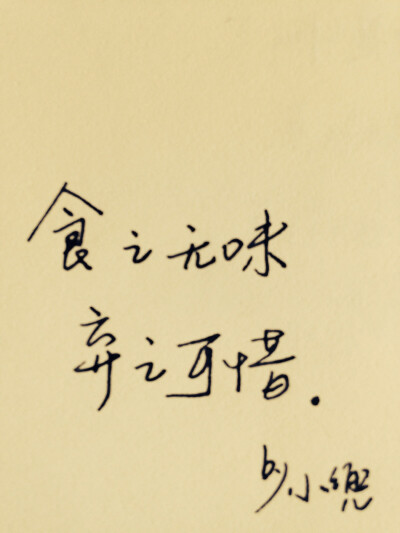 食之无味
弃之可惜.
by小兜